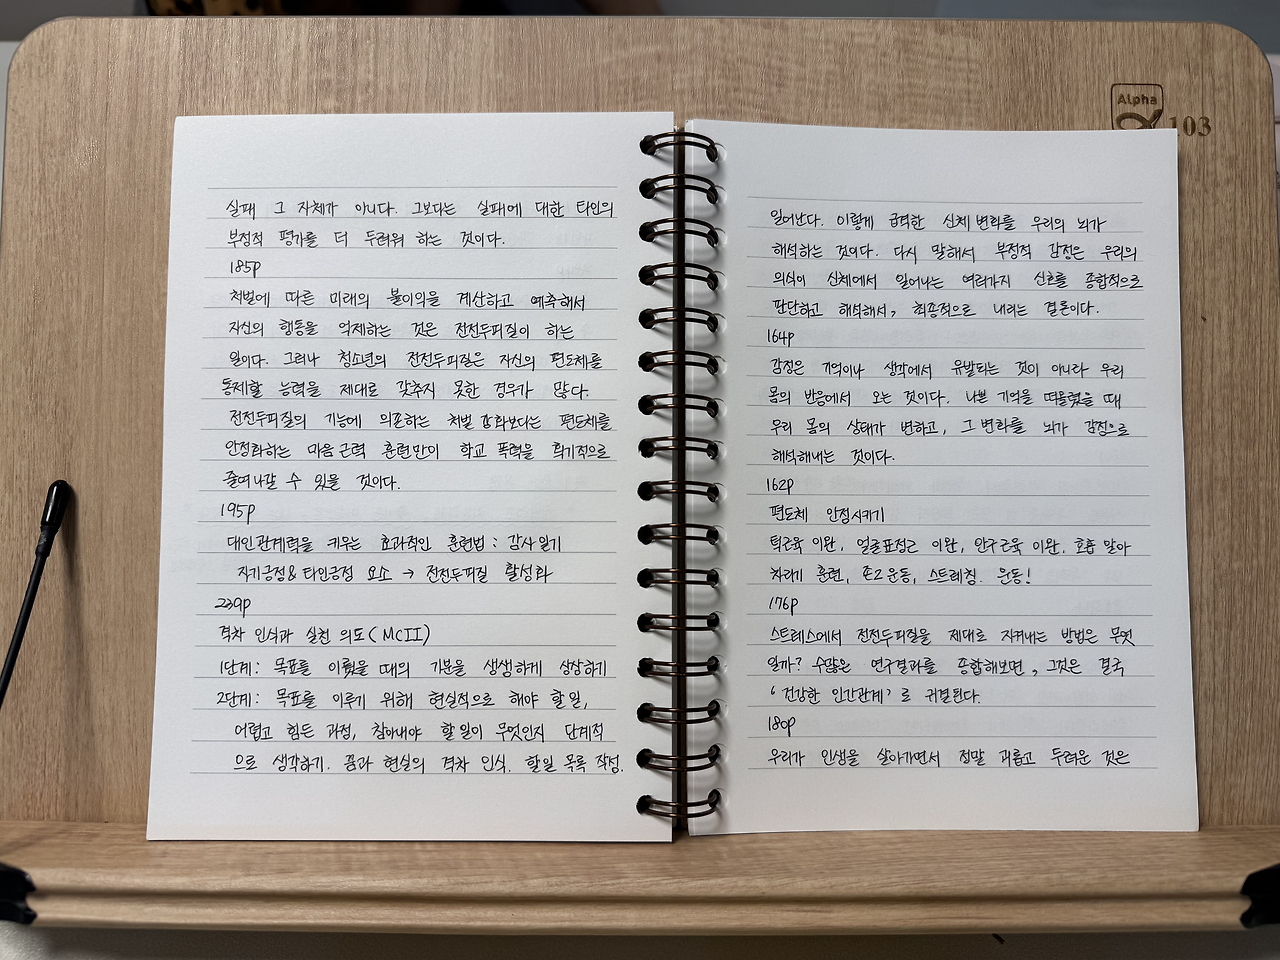 실패 그 자체가 아니다. 그보다는 실패에 대한 타인의
부정적 평가를 더 두려워 하는 것이다.
185p
처벌에 따른 미래의 불이익을 계산하고 예측해서
자신의 행동을 억제하는 것은 전전두피질이 하는
일이다. 그러나 청소년의 전전두피질은 자신의 편도체를
통제할 능력을 제대로 갖추지 못한 경우가 많다.
전전두피질의 기능에 의존하는 처벌 강화보다는 편도체를
안정화하는 마음근력 훈련만이 학교 폭력을 획기적으로
줄여나갈 수 있을 것이다.
195p
대인관계력을 키우는 효과적인 훈련법 : 감사일기
자기긍정& 타인긍정 요소 → 전전두피질 활성화
239p
격차 인식과 실천 의도(MCII)
1단계: 목표를 이뤘을 때의 기분을 생생하게 상상하기
2단계: 목표를 이루기 위해 현실적으로 해야 할 일,
어렵고 힘든 과정, 참아내야 할 일이 무엇인지 단계적
으로 생각하기. 꿈과 현실의 격차 인식. 할일 목록 작성.
Alpha
103
일어난다. 이렇게 급격한 신체변화를 우리의 뇌가
해석하는 것이다. 다시 말해서 부정적 감정은 우리의
의식이 신체에서 일어나는 여러가지 신호를 종합적으로
판단하고 해석해서, 최종적으로 내리는 결론이다.
164p
감정은 기억이나 생각에서 유발되는 것이 아니라 우리
몸의 반응에서 오는 것이다. 나쁜 기억을 떠올렸을 때
우리 몸의 상태가 변하고, 그 변화를 뇌가 감정으로
해석해내는 것이다.
162p
편도체 안정시키기
턱근육 이완, 얼굴표정근 이완, 안구근육 이완, 호흡 알아
차리기 훈련, 존2운동, 스트레칭. 운동!
176p
스트레스에서 전전두피질을 제대로 지켜내는 방법은 무엇
일까? 수많은 연구결과를 종합해보면, 그것은 결국
'건강한 인간관계'로 귀결된다.
180p
우리가 인생을 살아가면서 정말 괴롭고 두려운 것은